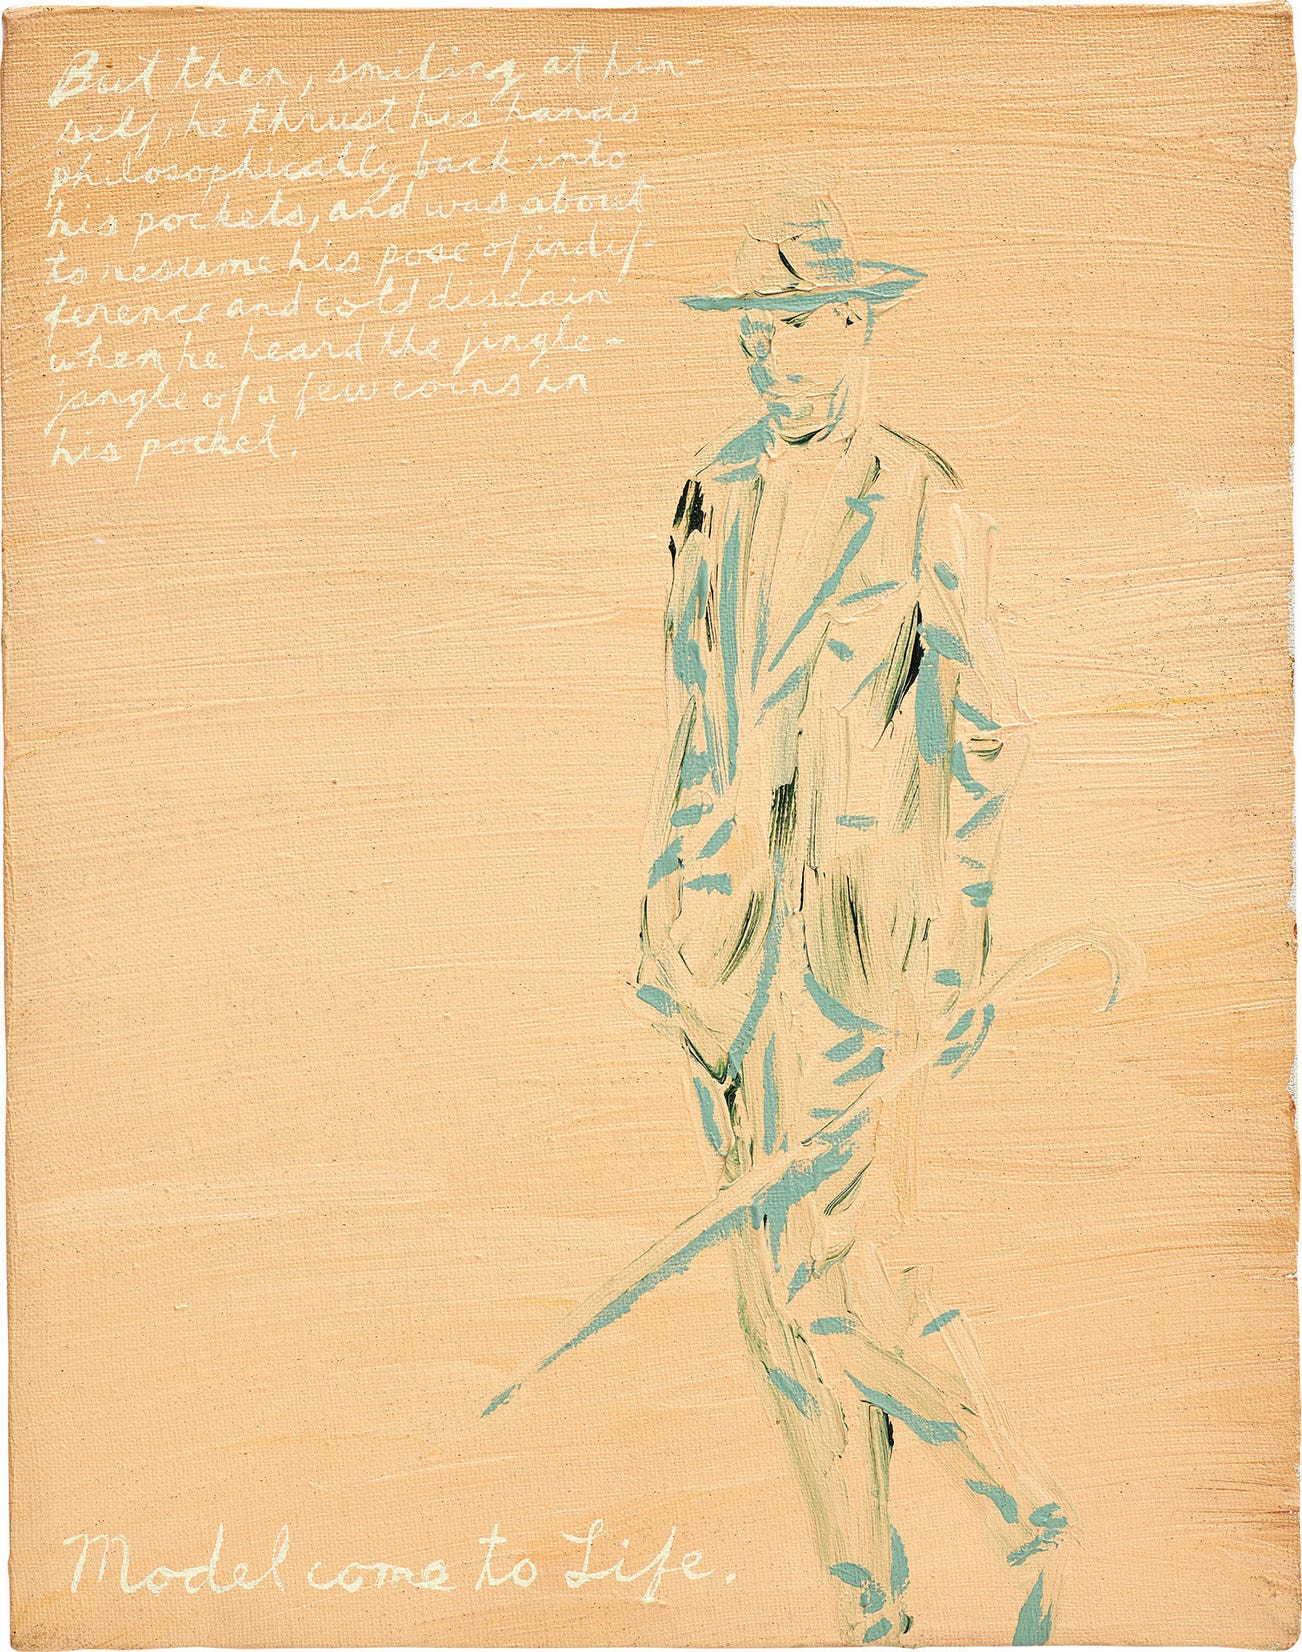 But then, smiling at him-
self, he thrust his hands
philosophically back into
his pockets, and was about
to resume his pose of indif-
ference and cold disdain
when he heard the jingle-
jangle of a few coins in
his pocket.
Model come to Life.